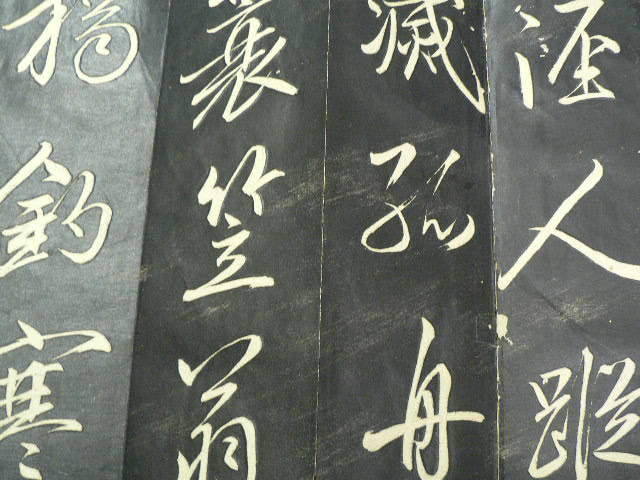 徑人蹤
滅孤舟
蓑笠翁
獨釣寒